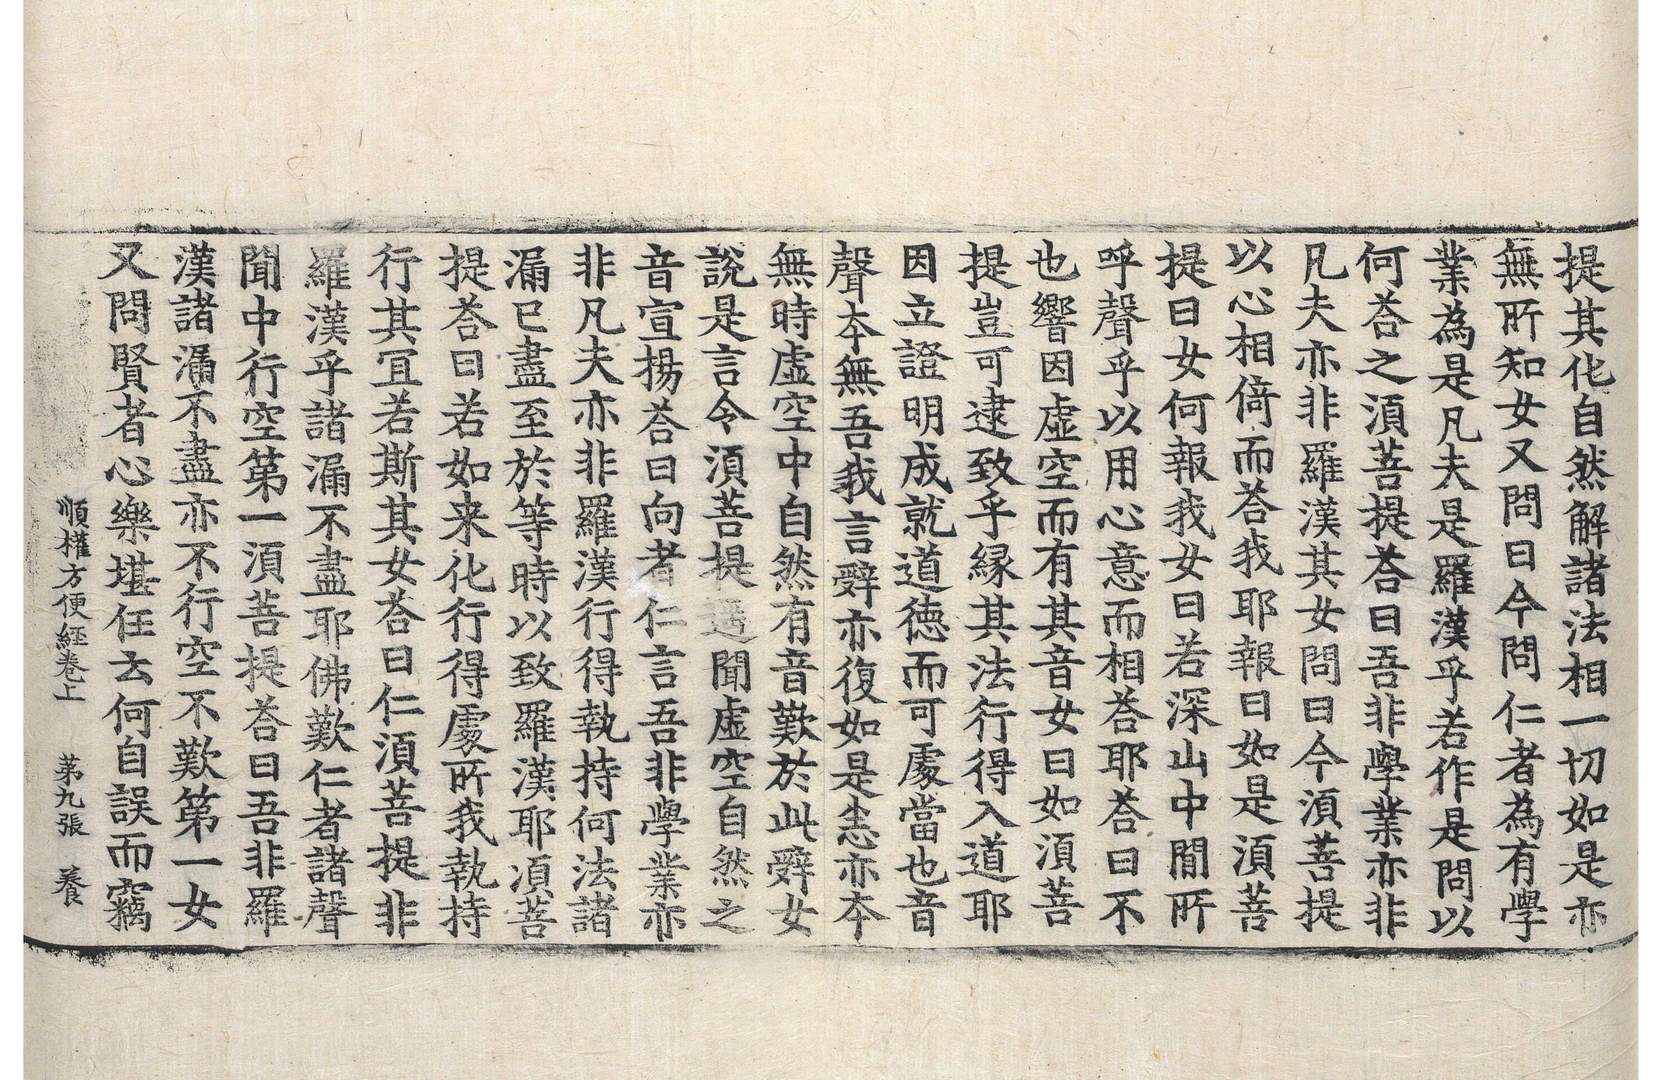 提其化自然解諸法相一切如是亦
無所知女又問曰今問仁者為有學
業為是凡夫是羅漢乎若作是問以
何荅之湏菩提荅曰吾非學業亦非
凡夫亦非羅漢其女問曰今湏菩提
以心相倚而荅我耶報曰如是湏菩
提曰女何報我女曰若深山中閒所
呼聲乎以用心意而相荅耶荅曰不
也響因虛空而有其音女曰如湏菩
提豈可逮致乎緣其法行得入道耶
因立證明成就道德而可處當也音
聲夲無吾我言辤亦復如是恚亦夲
無時虛空中自然有音歎於此辤女
說是言令湏菩提適聞虛空自然之
音宣揚荅曰向者仁言吾非學業亦
非凡夫亦非羅漢行得執持何法諸
漏已盡至於等時以致羅漢耶湏菩
提荅曰若如来化行得處所我執持
行其冝若斯其女荅曰仁湏菩提非
羅漢乎諸漏不盡耶佛歎仁者諸聲
聞中行空第一湏菩提荅曰吾非羅
漢諸漏不盡亦不行空不歎第一女
又問賢者心樂堪任云何自誤而竊
順權方便經卷上　第九張　養